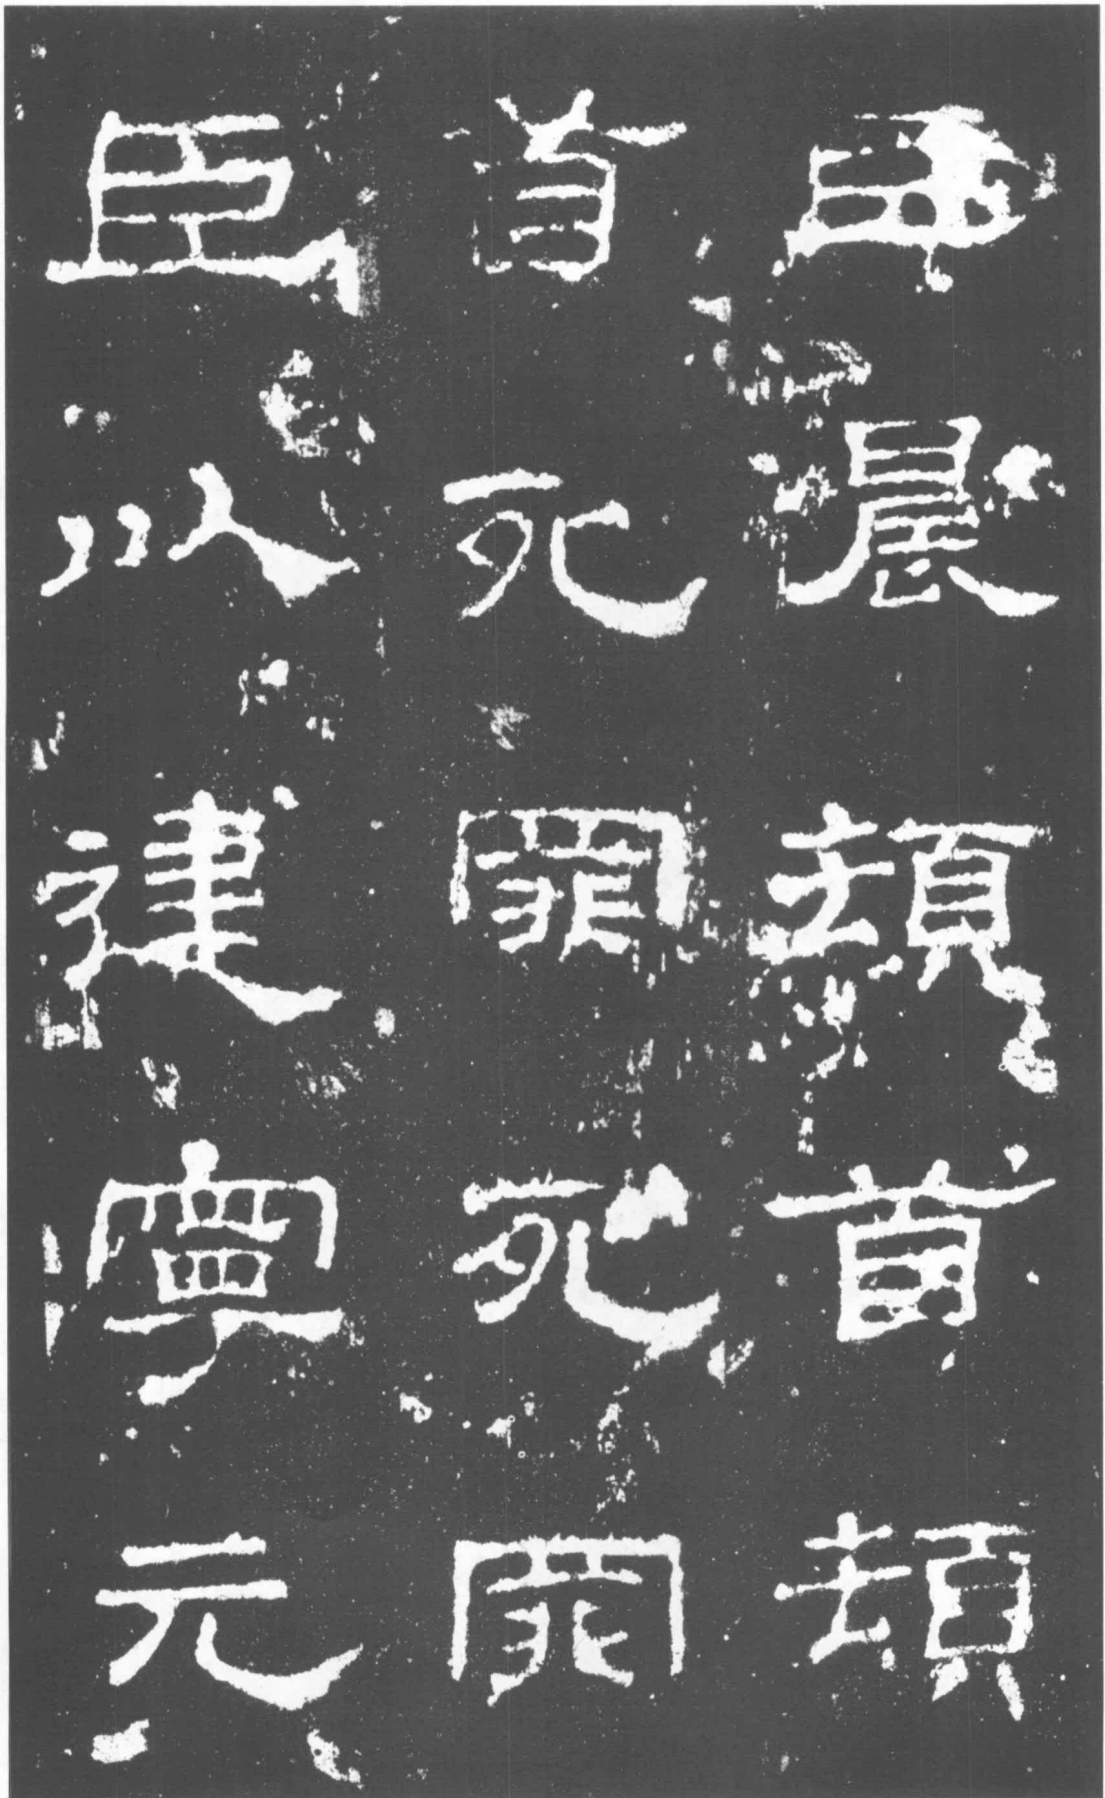 臣晨頓首頓
首死罪死罪
臣以建寧元